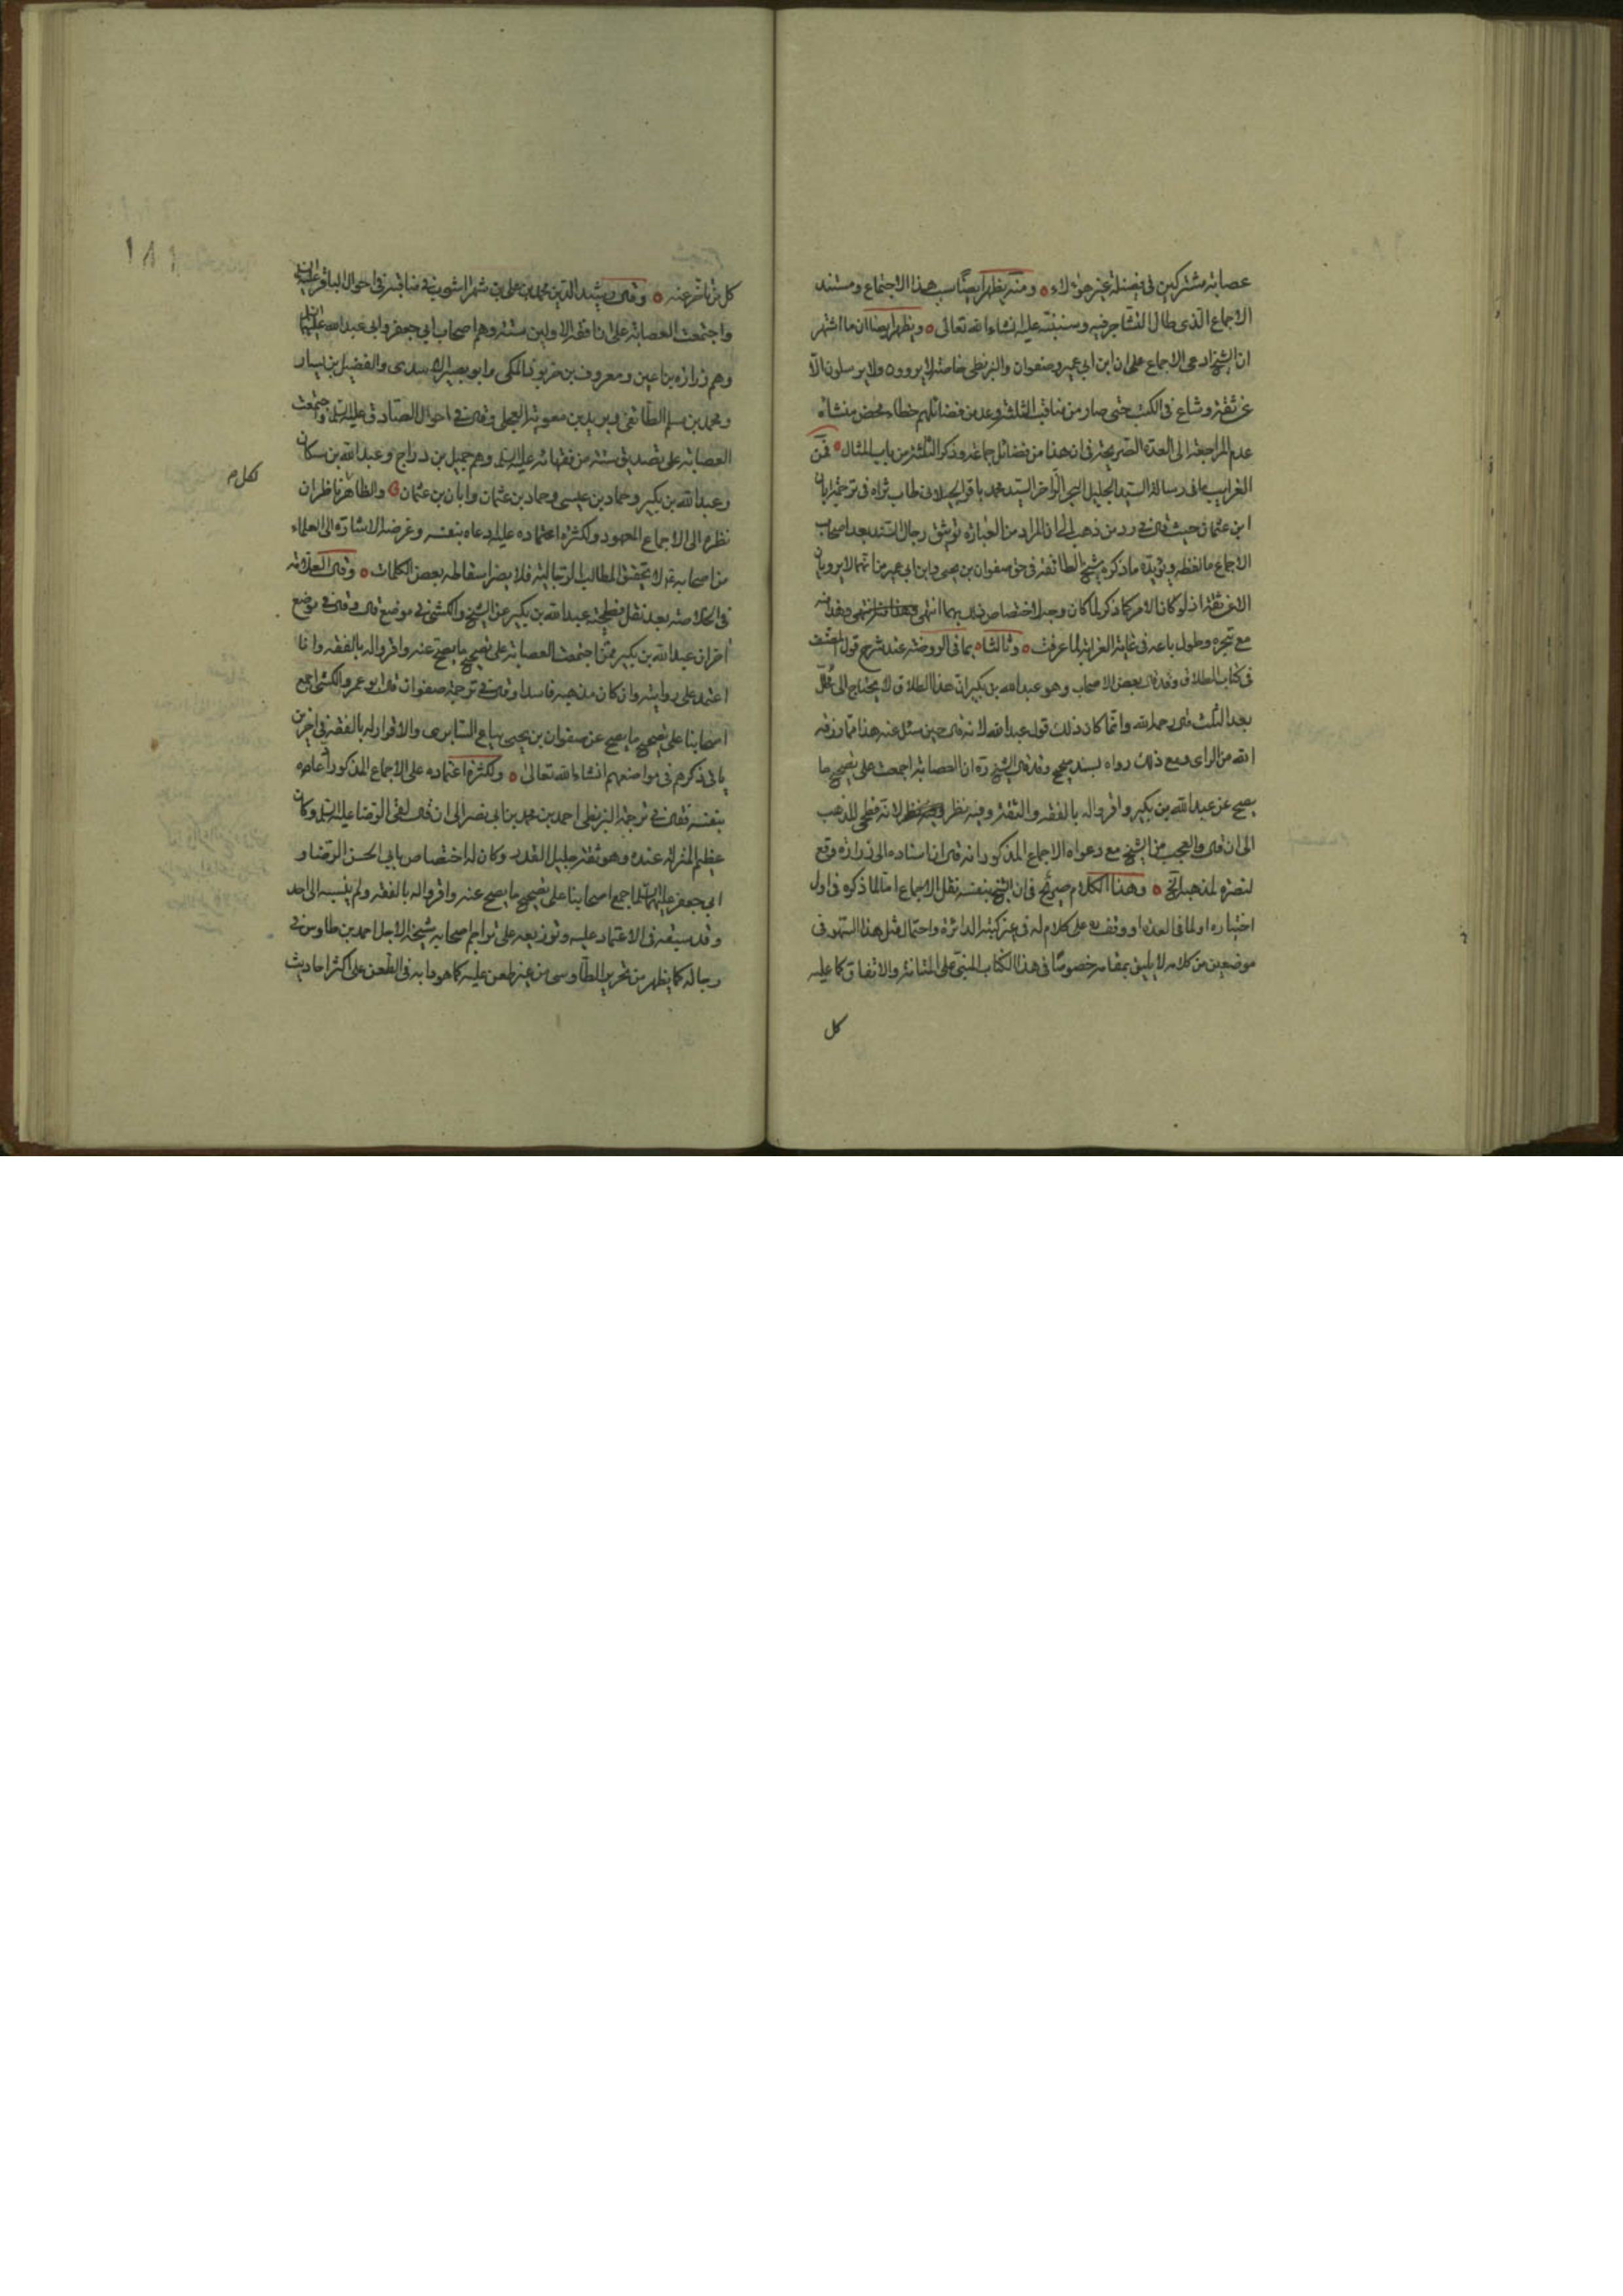 عصابة مشتركين في فضيلة غير هؤلاء ومنه يظهر ايضا سبب هذا الاجتماع ومستند
الاجماع الذي طال التشاجر فيه وسننبه عليه انشاء الله تعالى ويظهر ايضا ان ما اشتهر
ان الشيخ ادعى الاجماع على ان ابن ابي عمير وصفوان والبزنطي خاصة لا يروون ولا يرسلون الا
عن ثقة وشاع في الكتب حتى صار من مناقب الثلثة وعد من فضائلهم خطاء محض منشاه
عدم المراجعة الى العدة الصريحة في ان هذا من فضائل جماعة وذكر الثلثة من باب المثال فمن
الغرايب ما في رسالة السيد الجليل البحر الزاخر السيد محمد باقر الجيلاني طاب ثراه في ترجمة ابان
ابن عثمان حيث قال في رد من ذهب الى ان المراد من العبارة توثيق رجال السند بعد اصحاب
الاجماع ما لفظه ويؤيده ما ذكره شيخ الطائفة في حق صفوان بن يحيى وابن ابي عمير من انهما لا يرويان
الا عن ثقة اذ لو كان الامر كما ذكر لما كان وجه لاختصاص ذلك بهما انتهى وهذا منه
مع تبحره وطول باعه في غاية الغرابة لما عرفت وثالثا بما في الروضة عند شرح قول المصنف
في كتاب الطلاق وقد قال بعض الاصحاب وهو عبد الله بن بكير ان هذا الطلاق لا يحتاج الى محلل
بعد الثلث قال رحمه الله وانما كان ذلك قول عبد الله لانه قال حين سئل عنه هذا مما رزق
الله من الراي ومع ذلك رواه بسند صحيح وقد قال الشيخ ره ان العصابة اجمعت على تصحيح ما
يصح عن عبد الله بن بكير واقروا له بالفقه والثقة وفيه نظر لانه فطحي المذهب
الى ان قال والعجب من الشيخ مع دعواه الاجماع المذكور انه قال ان اسناده الى زرارة وقع
لنصرة لمذهبه الخ وهذا الكلام صريح في ان الشيخ بنفسه نقل الاجماع اما لما ذكره في اول
اختياره او لما في العدة او وقف على كلام له في غير كتبه الدائرة واحتمال مثل هذا السهو في
موضعين من كلامه لا يليق بمقامه خصوصا في هذا الكتاب المبني على المتانة والاتقان كما عليه
كل
١٨١
كل من تاخر عنه وقال رشيد الدين محمد بن علي بن شهراشوب في مناقبه في احوال الباقر عليه السلام
واجتمعت العصابة على ان افقه الاولين ستة وهم اصحاب ابي جعفر وابي عبد الله عليهما السلام
وهم زرارة بن اعين ومعروف بن خربوذ المكي وابو بصير الاسدي والفضيل بن يسار
ومحمد بن مسلم الطائفي وبريد بن معوية العجلي وقال في احوال الصادق عليه السلام واجتمعت
العصابة على تصديق ستة من فقهائه عليه السلام وهم جميل بن دراج وعبد الله بن مسكان
وعبد الله بن بكير وحماد بن عيسى وحماد بن عثمان وابان بن عثمان والظاهر ان
نظره الى الاجماع المعهود ولكثرة اعتماده عليه ادعاه بنفسه وغرضه الاشارة الى العلماء
من اصحابه لا تحقيق المطالب الرجالية فلا يضر اسقاطه بعض الكلمات وقال العلامة
في الخلاصة بعد نقل فطحية عبد الله بن بكير عن الشيخ والكشي في موضع قال وقال في موضع
اخر ان عبد الله بن بكير ممن اجتمعت العصابة على تصحيح ما يصح عنه واقروا له بالفقه وانا
اعتمد على روايته وان كان مذهبه فاسدا وقال في ترجمة صفوان قال ابو عمرو الكشي اجمع
اصحابنا على تصحيح ما يصح عن صفوان بن يحيى بياع السابري والاقرار له بالفقه في اخرين
ياتي ذكرهم في مواضعهم انشاء الله تعالى ولكثرة اعتماده على الاجماع المذكور ادعاه
بنفسه فقال في ترجمة البزنطي احمد بن محمد بن ابي نصر الى ان قال لقي الرضا عليه السلام وكان
عظيم المنزلة عنده وهو ثقة جليل القدر وكان له اختصاص بابي الحسن الرضا و
ابي جعفر عليهما السلام اجمع اصحابنا على تصحيح ما يصح عنه واقروا له بالفقه ولم ينسبه الى احد
وقد سبقه في الاعتماد عليه وتوزيعه على تراجم اصحابه شيخه الاجل احمد بن طاوس في
رجاله كما يظهر من تحرير الطاوسي من غير طعن عليه كما هو دابه في الطعن على اكثر احاديث